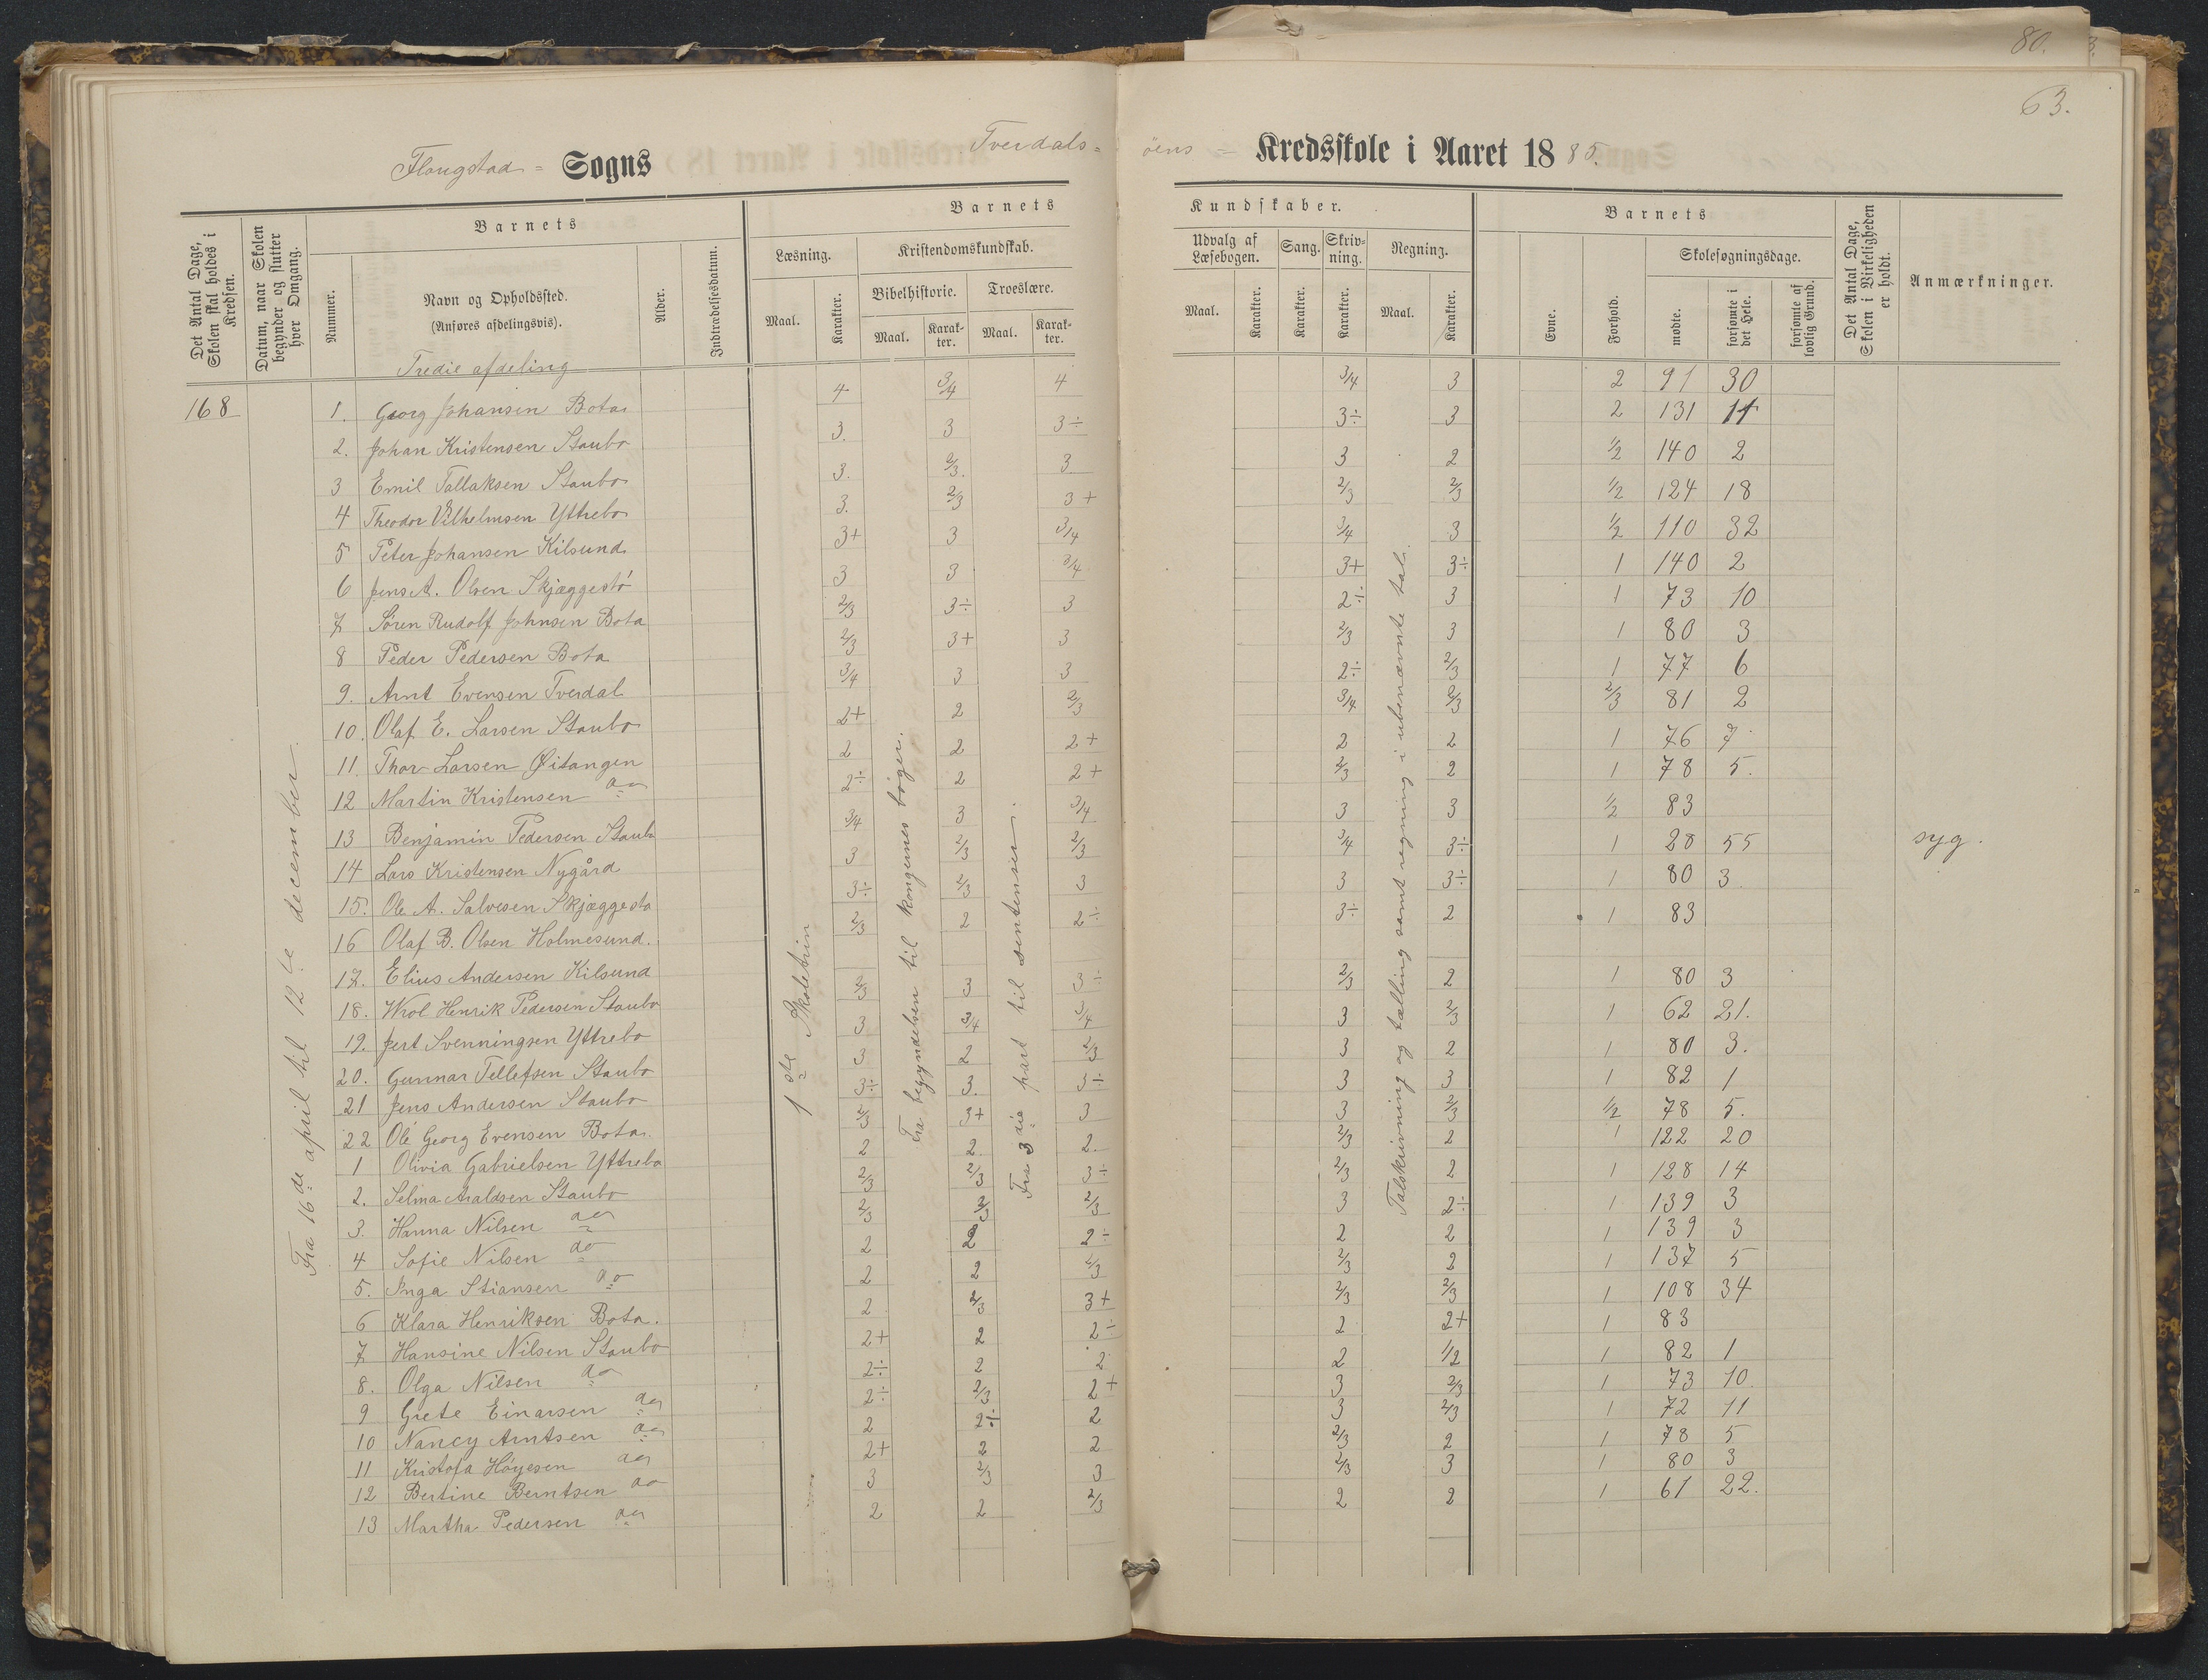 80.
63.
Flangstad = Sogns Tverdals=
öens = Kredsskole i Aaret 1885.
Det Antal Dage, Skolen skal holdes i Kredsen.
Datum, naar Skolen begynder og slutter hver Omgang.
Barnets
Nummer.
Navn og Opholdssted.
(Anføres afdelingsvis).
Alder.
Indtrædelsesdatum.
Barnets
Læsning.
Maal.
Karakter.
Kristendomskundskab.
Bibelhistorie.
Troeslære.
Maal.
Karakter.
Maal.
Karakter.
Kundskaber.
Udvalg af Læsebogen.
Sang.
Skrivning.
Regning.
Maal.
Karakter.
Karakter.
Karakter.
Maal.
Karakter.
Barnets
Evne.
Forhold.
Skolesøgningsdage.
mødte.
forsømte i det Hele.
forsømte af lovlig Grund.
Det Antal Dage, Skolen i Virkeligheden er holdt.
Anmærkninger.
Tredie afdeling
168
Fra 16de april til 12te december.
1ste Skoletrin
Fra begyndelsen til kongernes bøger.
Fra 3die part til sentenser.
Talskrivning og tælling samt regning i ubenævnte tal.
1. Georg Johansen Bota 4 3/4 4 3/4 3 2 91 30
2. Johan Kristensen Staubo 3. 3 3÷ 3÷ 3 2 131 11
3 Emil Tallaksen Staubo 3. 2/3. 3 3 2 1/2 140 2
4 Theodor Vilhelmsen Yttrebo 3. 2/3 3+ 2/3 2/3 1/2 124 18
5 Peter Johansen Kilsund 3+ 3 3/4 3/4 3 1/2 110 32
6 Jens A. Olsen Skjæggestö 3 3 3/4 3+ 3÷ 1 140 2
7 Sören Rudolf Johnsen Bota 2/3 3÷ 3 2÷ 3 1 73 10
8 Peder Pedersen Bota 2/3 3+ 3 2/3 3 1 80 3
9. Arnt Evensen Tverdal 3/4 3 3 2÷ 2/3 1 77 6
10. Olaf E. Larsen Staubo 2+ 2 2/3 3/4 2/3 2/3 81 2
11. Thor Larsen Øitangen 2 2 2+ 2 2 1 76 7
12 Martin Kristensen do 2÷ 2 2+ 2/3 2 1 78 5.
13 Benjamin Pedersen Staubo 3/4 3 3/4 3 3 1/2 83
14 Lars Kristensen Nygård 3 2/3 2/3 3/4 3÷ 1 28 55 syg.
15. Ole A. Salvesen Skjæggestö 3÷ 2/3 3 3 3÷ 1 80 3
16 Olaf B. Olsen Holmesund. 2/3 2 2÷ 3÷ 2 1 83
17. Elius Andersen Kilsund
18. Wrol Henrik Pedersen Staubo 2/3 3 3÷ 2/3 2 1 80 3
19. Jert Svenningsen Yttrebo 3 3/4 3/4 3 2/3 1 62 21.
20. Gunnar Tellefsen Staubo 3 2 2/3 3 2 1 80 3.
21 Jens Andersen Staubo 3÷ 3. 3÷ 3 3 1 82 1
22 Ole Georg Evensen Bota. 2/3 3+ 3 3 2/3 1/2 78 5.
1 Olivia Gabrielsen Yttrebo 2 2. 2. 2/3 2 1 122 20
2. Selma Araldsen Staubo 2/3 2/3 3÷ 2/3 2 1 128 14
3. Hanna Nilsen do 2/3 2/3 2/3 3 2÷ 1 139 3
4 Sofie Nilsen do 2 2 2÷ 2 2 1 139 3
5. Inga Stiansen do 2 2 2/3 2/3 2 1 137 5
6 Klara Henriksen Bota. 2 2/3 3+ 2/3 2/3 1 108 34
7 Hansine Nilsen Staubo 2+ 2 2÷ 2 2+ 1 83
8. Olga Nilsen do 2÷ 2 2 2 1/2 1 82 1
9 Grete Einarsen do 2÷ 2/3 2+ 3 2/3 1 73 10.
10 Nancy Arntsen do 2 2÷ 2 3 2/3 1 72 11
11 Kristofa Höyesen do 2+ 2 2 2/3 2 1 78 5
12 Bertine Berntsen do 3 2/3 3 2/3 3 1 80 3
13 Martha Pedersen do 2 2 2/3 2 2 1 61 22.